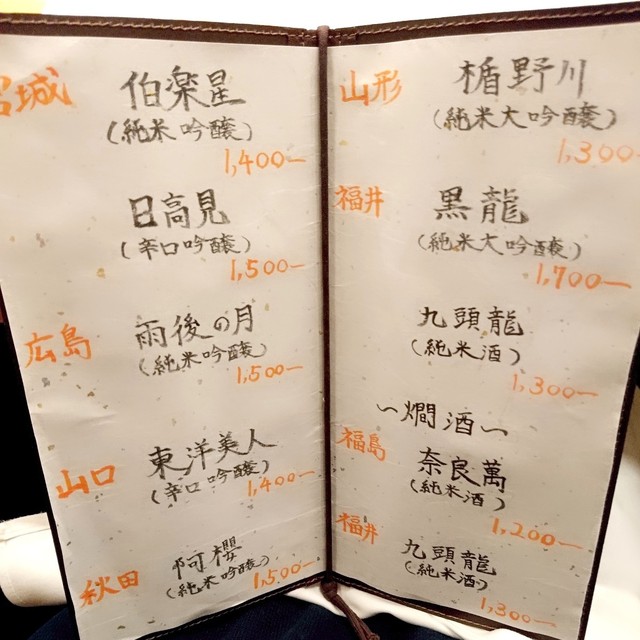 宮城
伯楽星
(純米吟醸)
1,400-
日高見
(辛口吟醸)
1,500-
広島
雨後の月
(純米吟醸)
1,500-
山口
東洋美人
(辛口吟醸)
1,400-
秋田
阿櫻
(純米吟醸)
1,500-
山形
楯野川
(純米大吟醸)
1,300-
福井
黒龍
(純米大吟醸)
1,700-
九頭龍
(純米酒)
1,300-
~燗酒~
福島
奈良萬
(純米酒)
1,200-
福井
九頭龍
(純米酒)
1,300-